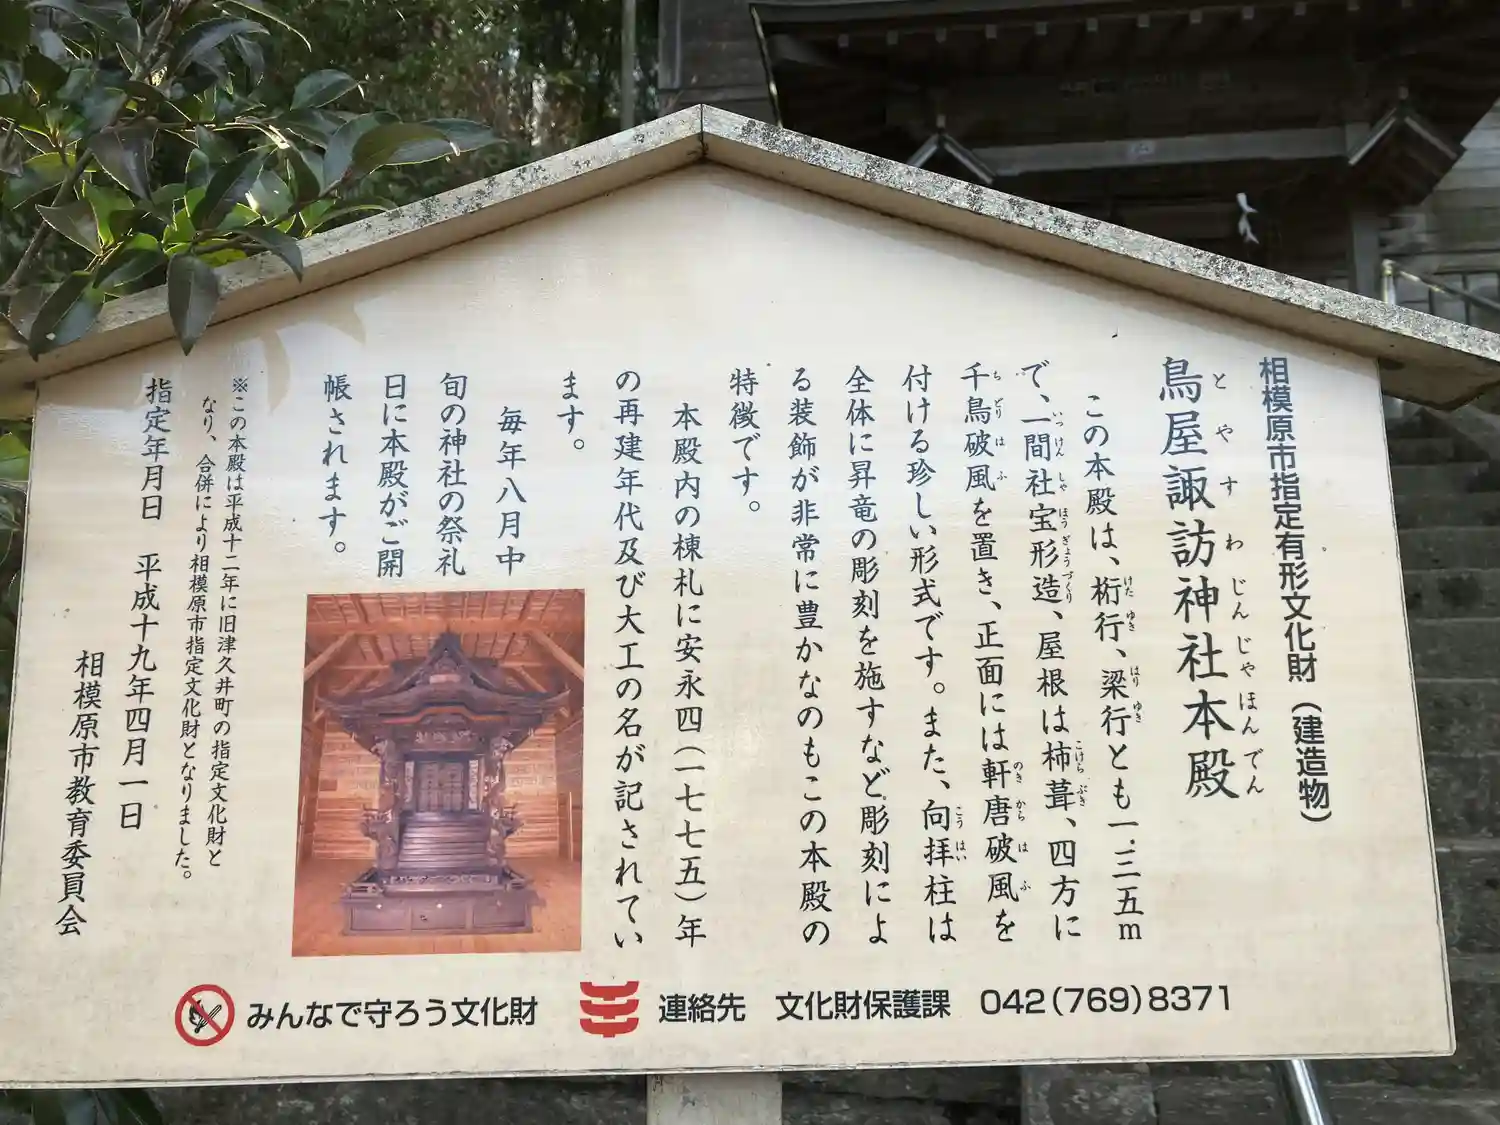 相模原市指定有形文化財（建造物）
鳥屋諏訪神社本殿
とやすわじんじゃほんでん
この本殿は、桁行、梁行とも一.三五m
で、一間社宝形造、屋根は杮葺、四方に
千鳥破風を置き、正面には軒唐破風を
付ける珍しい形式です。また、向拝柱は
全体に昇竜の彫刻を施すなど彫刻によ
る装飾が非常に豊かなのもこの本殿の
特徴です。
本殿内の棟札に安永四（一七七五）年
の再建年代及び大工の名が記されてい
ます。
毎年八月中
旬の神社の祭礼
日に本殿がご開
帳されます。
※この本殿は平成十二年に旧津久井町の指定文化財と
なり、合併により相模原市指定文化財となりました。
指定年月日　平成十九年四月一日
相模原市教育委員会
みんなで守ろう文化財
連絡先　文化財保護課　042(769)8371